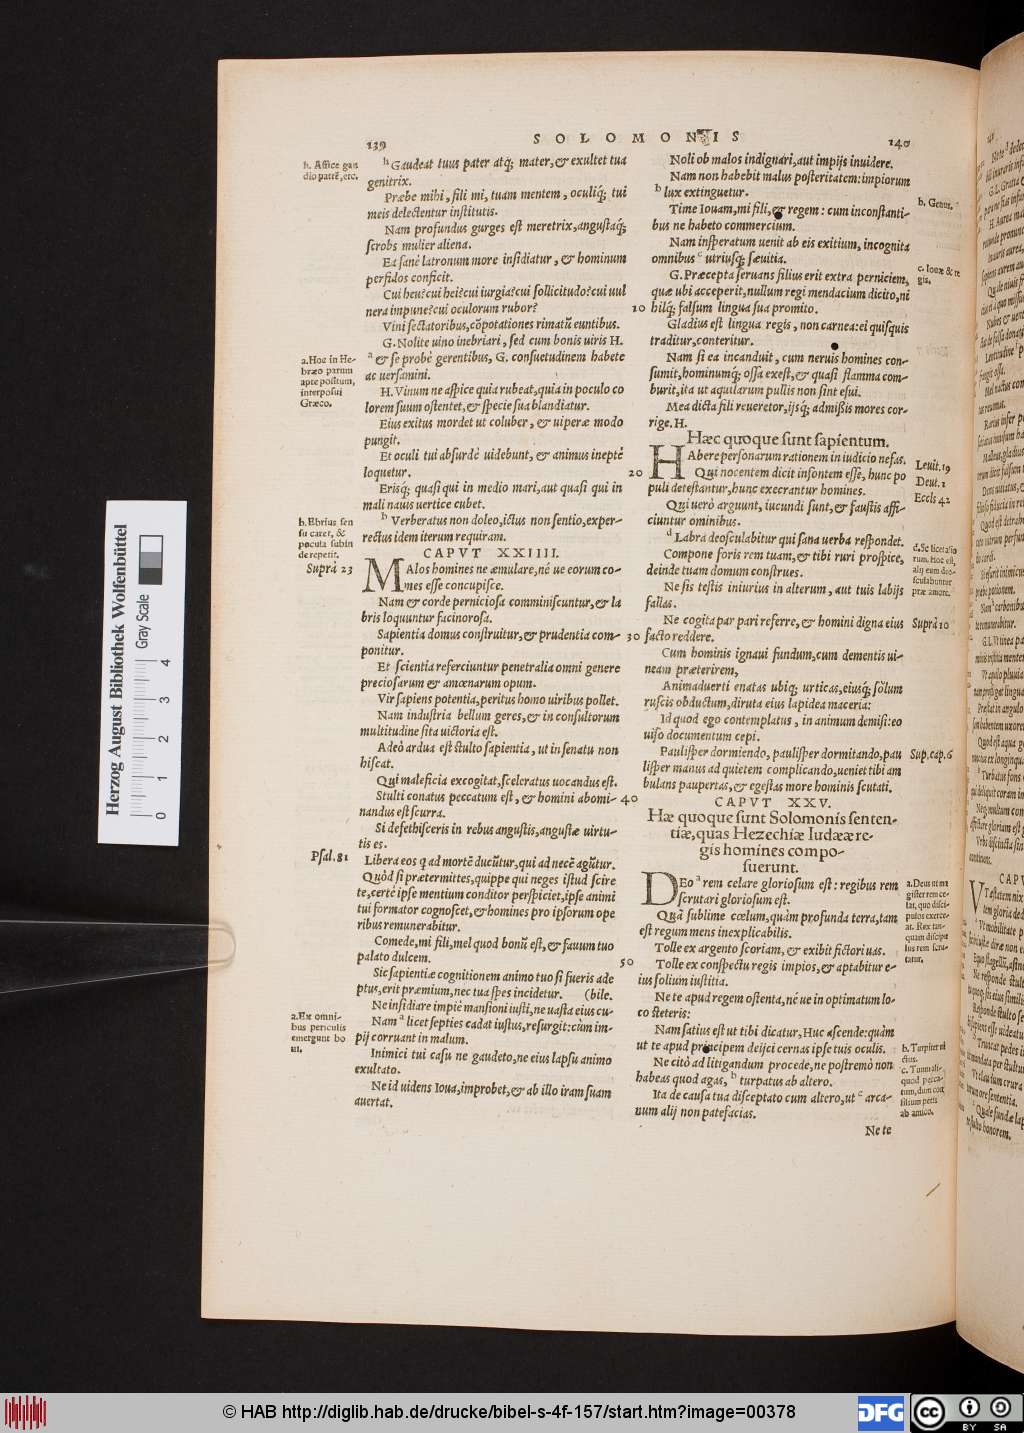 SOLOMONIS
139
140
h. Affice gau
dio patrē, etc.
h Gaudeat tuus pater atq; mater, & exultet tua
genitrix.
Præbe mihi, fili mi, tuam mentem, oculiq; tui
meis delectentur institutis.
Nam profundus gurges est meretrix, angustaq;
scrobs mulier aliena.
Ea sanè latronum more insidiatur, & hominum
perfidos conficit.
Cui heu? cui hei? cui iurgia? cui sollicitudo? cui uul
nera impune? cui oculorum rubor?
Vini sectatoribus, cōpotationes rimatū euntibus.
G. Nolite uino inebriari, sed cum bonis uiris H.
a & se probè gerentibus, G. consuetudinem habete
ac uersamini.
H. Vinum ne aspice quia rubeat, quia in poculo co
lorem suum ostentet, & specie sua blandiatur.
Eius exitus mordet ut coluber, & uiperæ modo
pungit.
Et oculi tui absurdè uidebunt, & animus ineptè
loquetur.
Erisq; quasi qui in medio mari, aut quasi qui in
mali nauis uertice cubet.
b Verberatus non doleo, ictus non sentio, exper-
rectus idem iterum requiram.
a. Hoc in He-
bræo parum
apte positum,
interposui
Græco.
b. Ebrius sen
su caret, &
pocula subin
de repetit.
CAPVT XXIIII.
Suprà 23
MAlos homines ne æmulare, né ue eorum co-
mes esse concupisce.
Nam & corde perniciosa comminiscuntur, & la
bris loquuntur facinorosa.
Sapientia domus construitur, & prudentia com-
ponitur.
Et scientia referciuntur penetralia omni genere
preciosarum & amœnarum opum.
Vir sapiens potentia, peritus homo uiribus pollet.
Nam industria bellum geres, & in consultorum
multitudine sita uictoria est.
Adeò ardua est stulto sapientia, ut in senatu non
hiscat.
Qui maleficia excogitat, sceleratus uocandus est.
Stulti conatus peccatum est, & homini abomi-
nandus est scurra.
Si defethisceris in rebus angustis, angustæ uirtu-
tis es.
Psal. 81
Libera eos q ad mortē ducūtur, qui ad necē agūtur.
Quòd si prætermittes, quippe qui neges istud scire
te, certè ipse mentium conditor perspiciet, ipse animi
tui formator cognoscet, & homines pro ipsorum ope
ribus remunerabitur.
Comede, mi fili, mel quod bonū est, & fauum tuo
palato dulcem.
Sic sapientiæ cognitionem animo tuo si fueris ade
ptus, erit præmium, nec tua spes incidetur. (bile.
Ne insidiare impiè mansioni iusti, ne uasta eius cu-
Nam a licet septies cadat iustus, resurgit: cùm im-
pij corruant in malum.
Inimici tui casu ne gaudeto, ne eius lapsu animo
exultato.
Ne id uidens Ioua, improbet, & ab illo iram suam
auertat.
a. Ex omni-
bus periculis
emergunt bo
ni.
Noli ob malos indignari, aut impijs inuidere.
Nam non habebit malus posteritatem: impiorum
b lux extinguetur.
Time Iouam, mi fili, & regem: cum inconstanti-
bus ne habeto commercium.
Nam insperatum uenit ab eis exitium, incognita
omnibus c utriusq; sæuitia.
G. Præcepta seruans filius erit extra perniciem,
quæ ubi acceperit, nullum regi mendacium dicito, ni
10 hilq; falsum lingua sua promito.
Gladius est lingua regis, non carnea: ei quisquis
traditur, conteritur.
Nam si ea incanduit, cum neruis homines con-
sumit, hominumq; ossa exest, & quasi flamma com-
burit, ita ut aquilarum pullis non sint esui.
Mea dicta fili reueretor, ijsq; admissis mores cor-
rige. H.
b. Genus.
c. Iouæ & re
gis.
Hæc quoque sunt sapientum.
HAbere personarum rationem in iudicio nefas.
20 Qui nocentem dicit insontem esse, hunc po
puli detestantur, hunc execrantur homines.
Qui uerò arguunt, iucundi sunt, & faustis affi-
ciuntur ominibus.
d Labra deosculabitur qui sana uerba respondet.
Compone foris rem tuam, & tibi ruri prospice,
deinde tuam domum construes.
Ne sis testis iniurius in alterum, aut tuis labijs
fallas.
Ne cogita par pari referre, & homini digna eius
30 facto reddere.
Cum hominis ignaui fundum, cum dementis ui-
neam præterirem,
Animaduerti enatas ubiq; urticas, eiusq; solum
ruscis obductum, diruta eius lapidea maceria:
Id quod ego contemplatus, in animum demisi: eo
uiso documentum cepi.
Paulisper dormiendo, paulisper dormitando, pau
lisper manus ad quietem complicando, ueniet tibi am
bulans paupertas, & egestas more hominis scutati.
Leuit. 19
Deut. 1
Eccls 42
d. Sc licet alio
rum. Hoc est,
alij eum deo-
sculabuntur
præ amore.
Suprà 10
Sup. cap. 6
40
CAPVT XXV.
Hæ quoque sunt Solomonis senten-
tiæ, quas Hezechiæ Iudææ re-
gis homines compo-
suerunt.
DEo a rem celare gloriosum est: regibus rem
scrutari gloriosum est.
Quà sublime cœlum, quàm profunda terra, tam
est regum mens inexplicabilis.
Tolle ex argento scoriam, & exibit fictori uas.
50 Tolle ex conspectu regis impios, & aptabitur e-
ius solium iustitia.
Ne te apud regem ostenta, né ue in optimatum lo-
co steteris:
Nam satius est ut tibi dicatur, Huc ascende: quàm
ut te apud principem deijci cernas ipse tuis oculis.
Ne citò ad litigandum procede, ne postremò non
habeas quod agas, b turpatus ab altero.
Ita de causa tua disceptato cum altero, ut c arca-
num alij non patefacias.
Ne te
a. Deus ut ma
gister rem ce-
lat, quo disci-
pulos exerce-
at. Rex tan-
quam discipu
lus rem scru-
tatur.
b. Turpiter ui
ctus.
c. Tuum ali-
quod pecca-
tum, dum con
silium petis
ab amico.
Herzog August Bibliothek Wolfenbüttel
Gray Scale
0 1 2 3 4
© HAB http://diglib.hab.de/drucke/bibel-s-4f-157/start.htm?image=00378
DFG
cc
BY SA